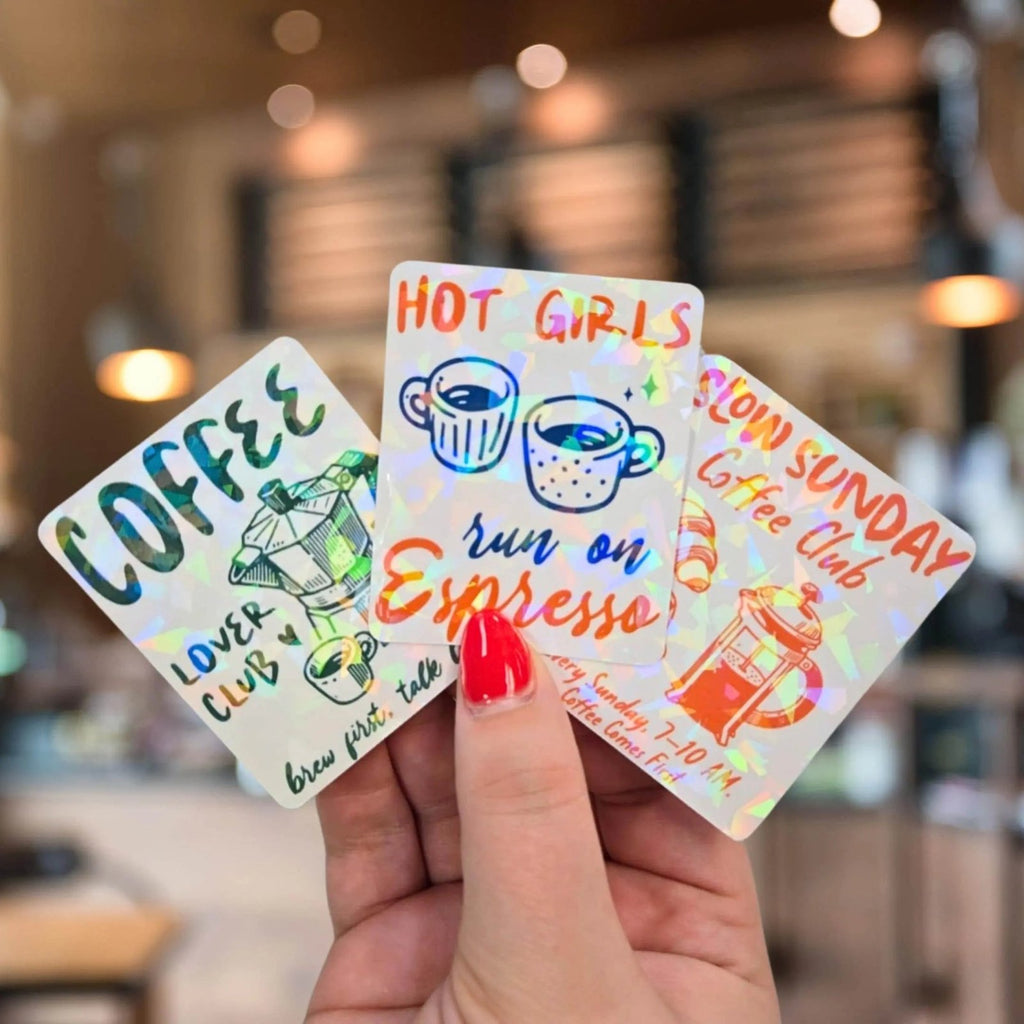 COFFEE
LOVER
CLUB
brew first, talk
HOT GIRLS
run on
Espresso
SLOW SUNDAY
Coffee Club
Sunday, 7–10 AM.
Coffee Comes First